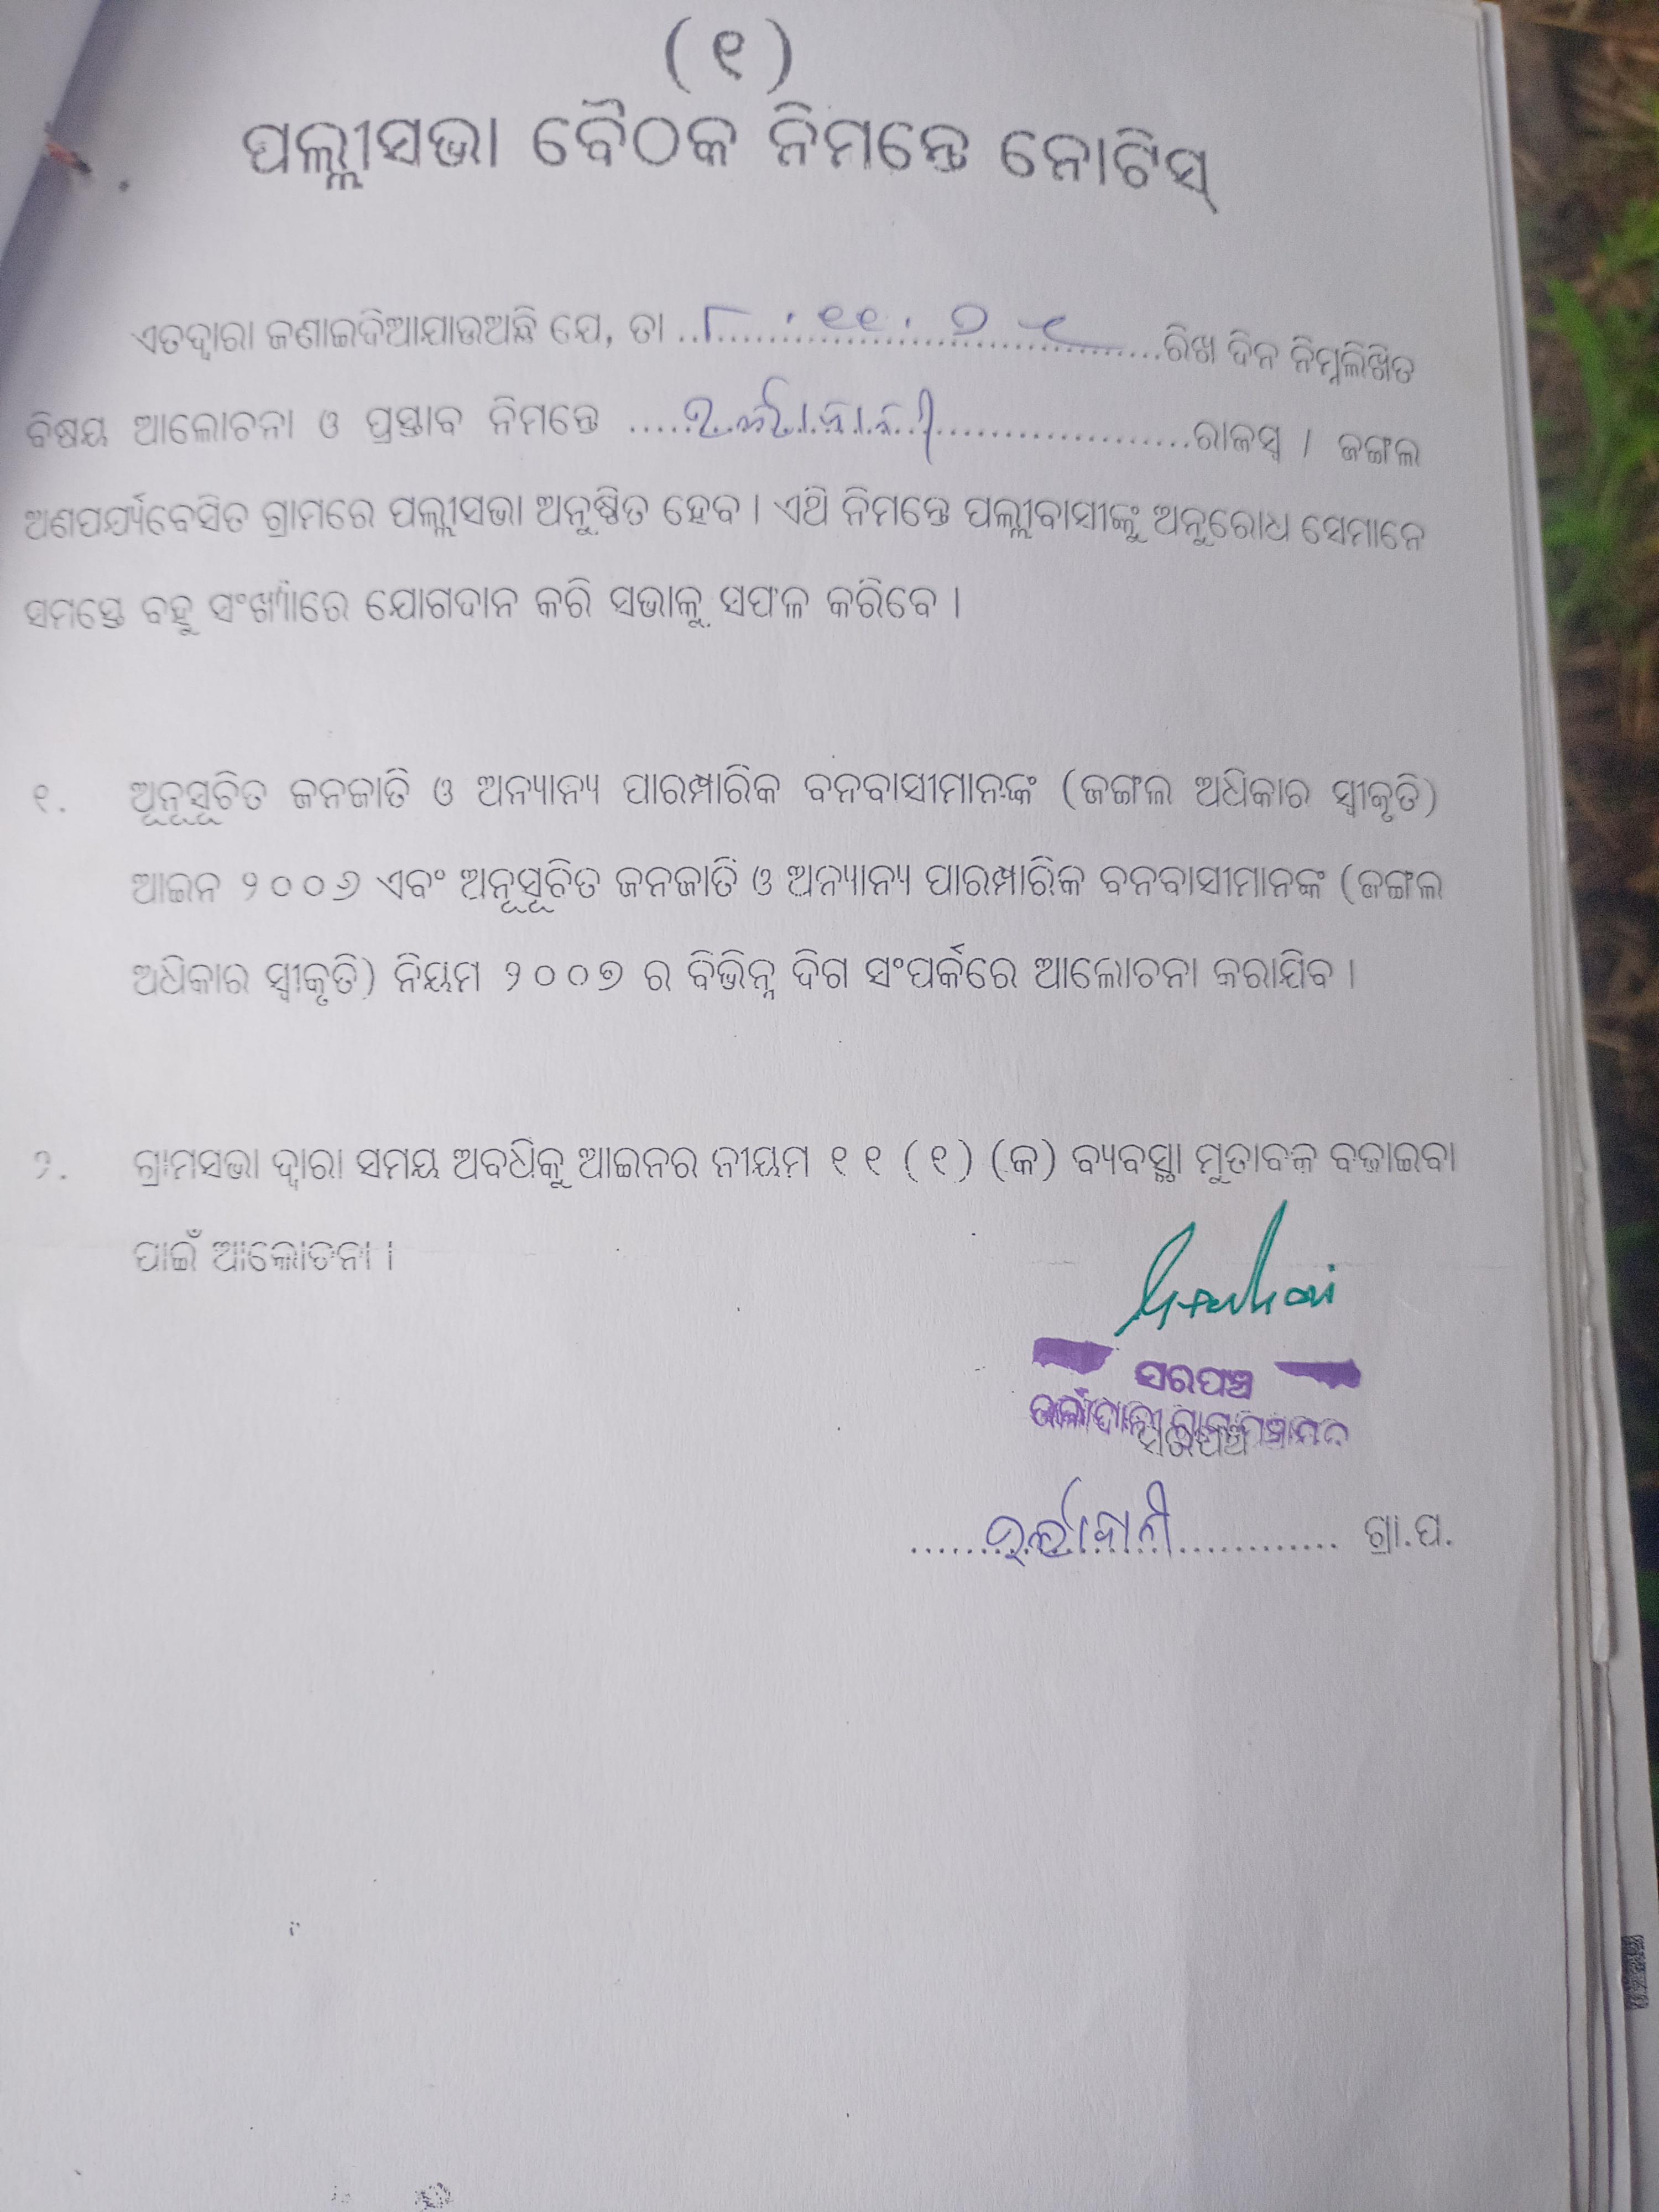 (୧)
ପଲ୍ଲୀସଭା ବୈଠକ ନିମନ୍ତେ ନୋଟିସ୍
ଏତଦ୍ୱାରା ଜଣାଇଦିଆଯାଉଅଛି ଯେ, ତା ..୮.୧୧.....ରିଖ ଦିନ ନିମ୍ନଲିଖିତ
ବିଷୟ ଆଲୋଚନା ଓ ପ୍ରସ୍ତାବ ନିମନ୍ତେ ..........ରାଜସ୍ୱ / ଜଙ୍ଗଲ
ଅଣପର୍ଯ୍ୟବେସିତ ଗ୍ରାମରେ ପଲ୍ଲୀସଭା ଅନୁଷ୍ଠିତ ହେବ । ଏଥି ନିମନ୍ତେ ପଲ୍ଲୀବାସୀଙ୍କୁ ଅନୁରୋଧ ସେମାନେ
ସମସ୍ତେ ବହୁ ସଂଖ୍ୟାରେ ଯୋଗଦାନ କରି ସଭାକୁ ସଫଳ କରିବେ ।
୧. ଅନୁସୂଚିତ ଜନଜାତି ଓ ଅନ୍ୟାନ୍ୟ ପାରମ୍ପାରିକ ବନବାସୀମାନଙ୍କ (ଜଙ୍ଗଲ ଅଧିକାର ସ୍ୱୀକୃତି)
ଆଇନ ୨୦୦୬ ଏବଂ ଅନୁସୂଚିତ ଜନଜାତି ଓ ଅନ୍ୟାନ୍ୟ ପାରମ୍ପାରିକ ବନବାସୀମାନଙ୍କ (ଜଙ୍ଗଲ
ଅଧିକାର ସ୍ୱୀକୃତି) ନିୟମ ୨୦୦୭ ର ବିଭିନ୍ନ ଦିଗ ସଂପର୍କରେ ଆଲୋଚନା କରାଯିବ ।
୨. ଗ୍ରାମସଭା ଦ୍ୱାରା ସମୟ ଅବଧିକୁ ଆଇନର ନୀୟମ ୧୧ (୧) (କ) ବ୍ୟବସ୍ଥା ମୁତାବକ ବଢାଇବା
ପାଇଁ ଆଲୋଚନା ।
ସରପଞ୍ଚ
ସରପଞ୍ଚ
.......... ଗ୍ରା.ପ.